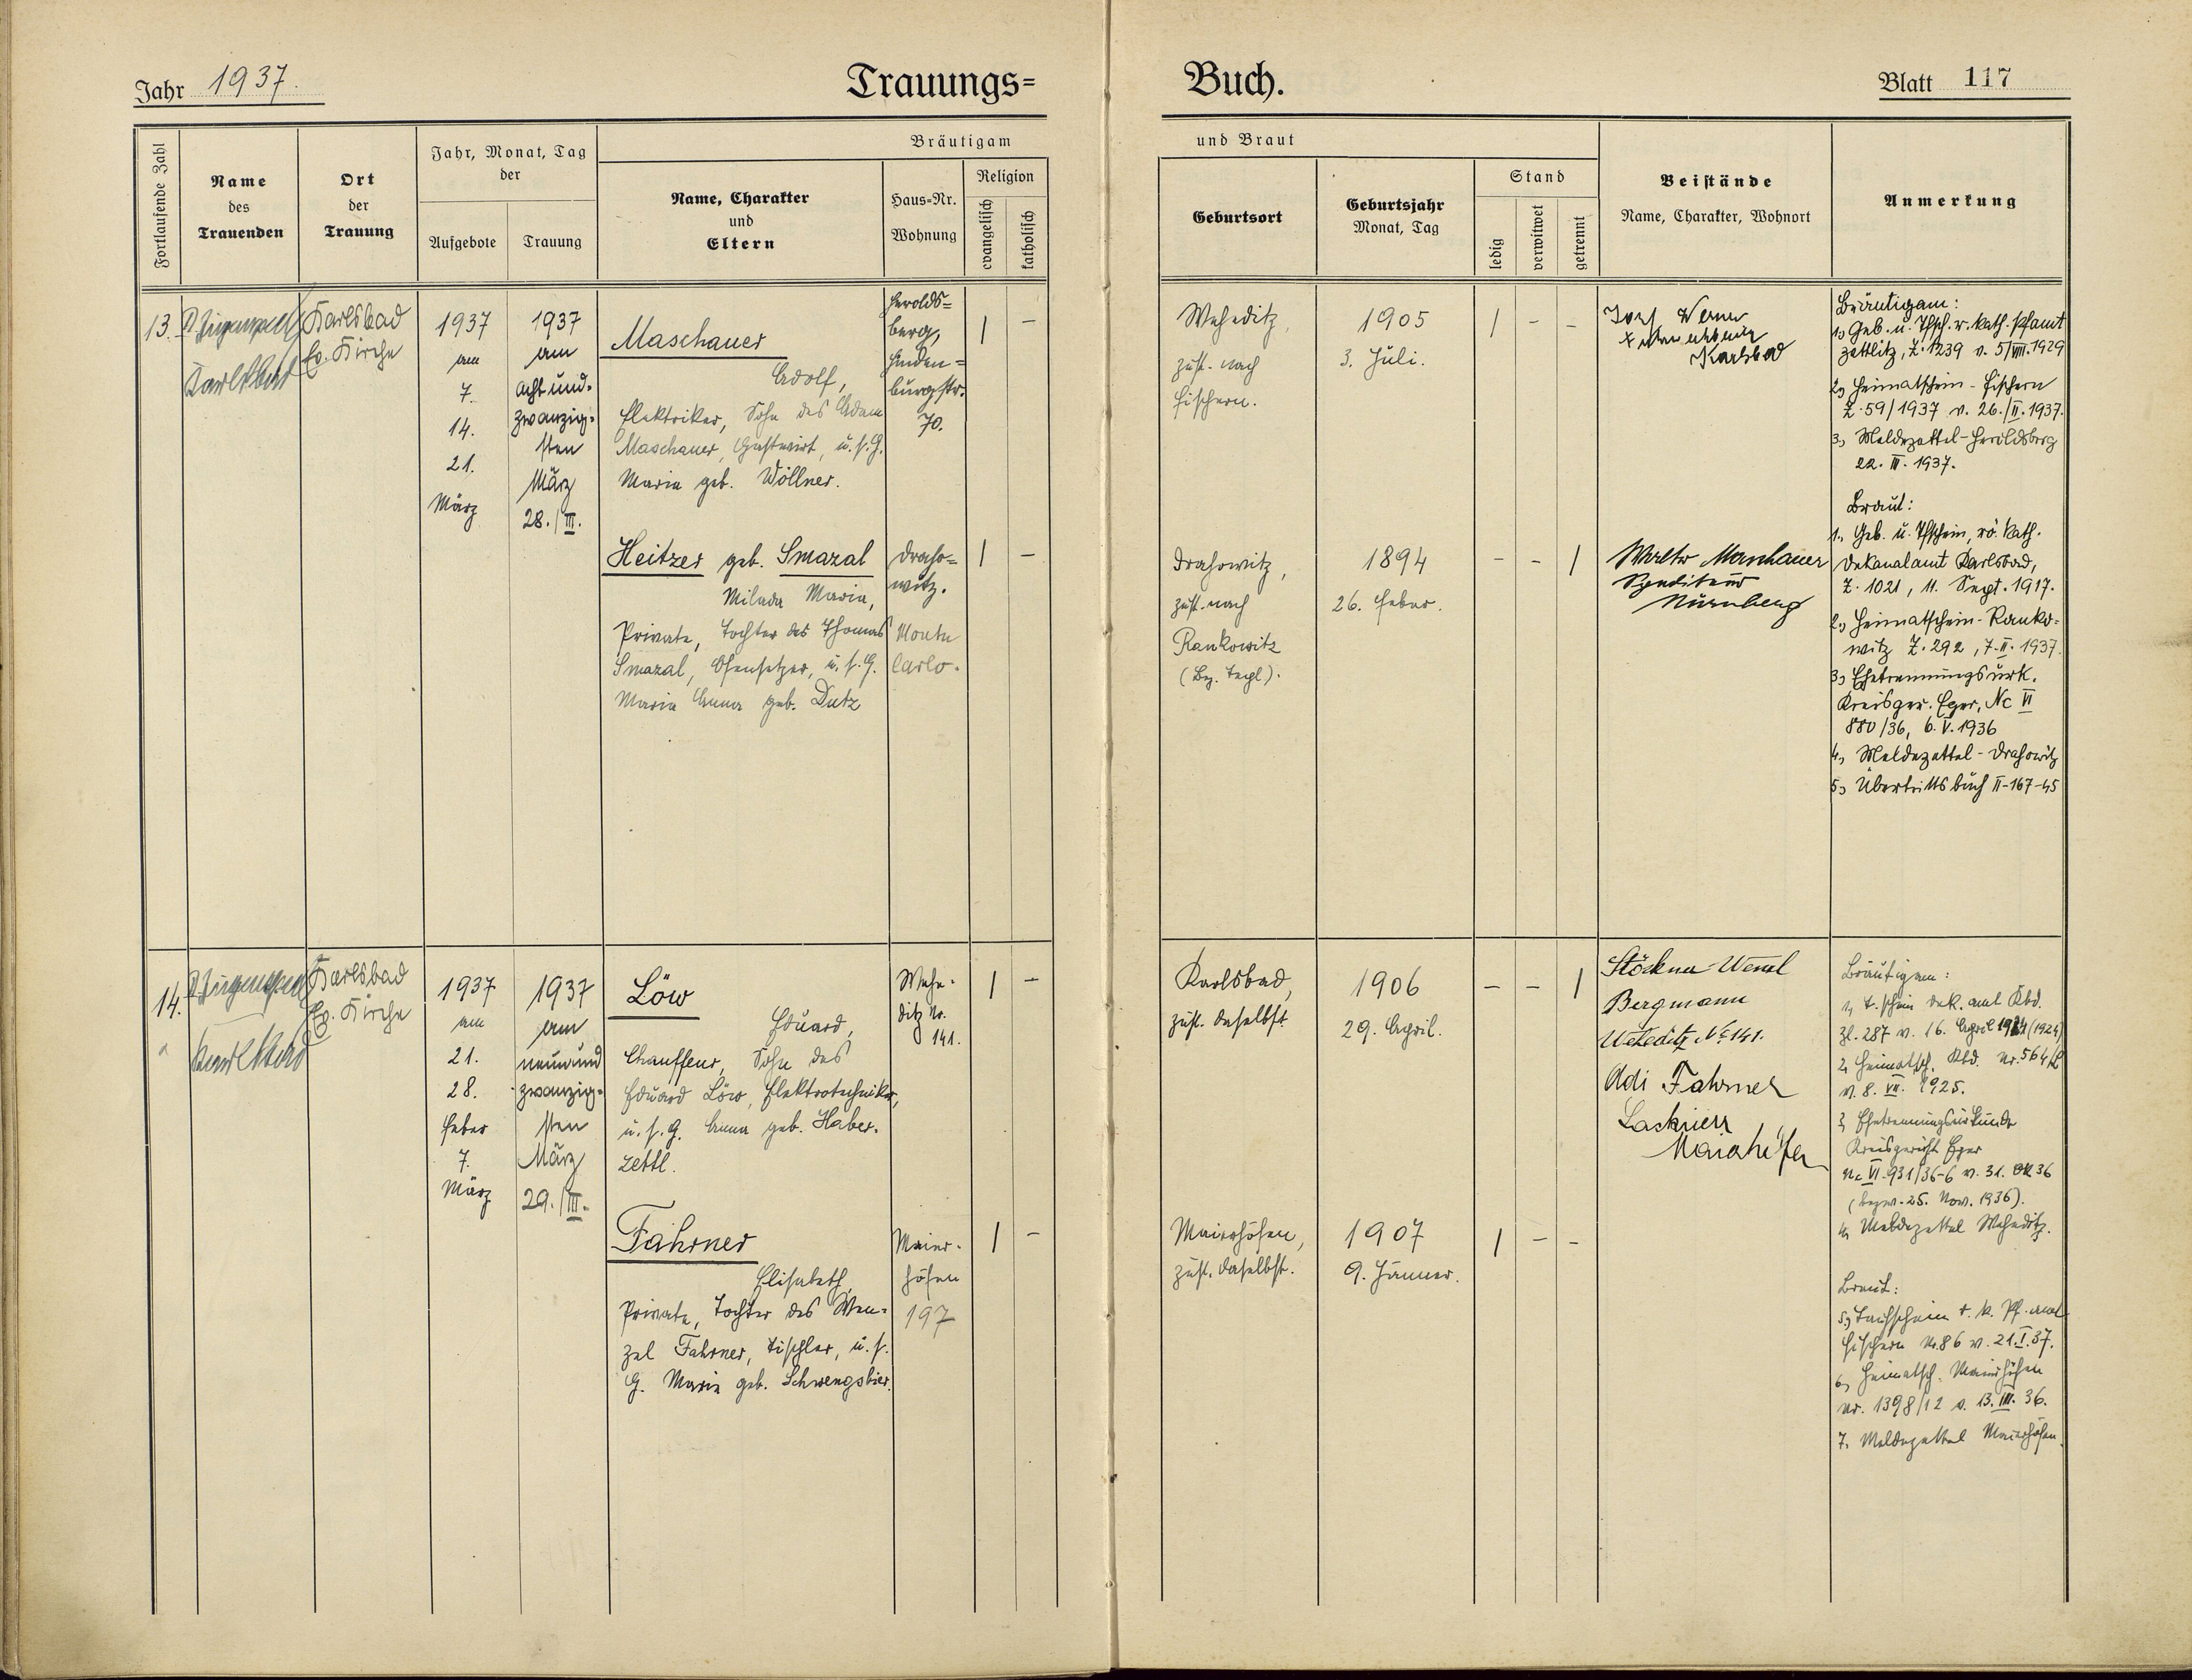 Jahr 1937.
Trauungs=
Buch.
Blatt 117
Fortlaufende Zahl
Name
des
Trauenden
Ort
der
Trauung
Jahr, Monat, Tag
der
Aufgebote
Trauung
Bräutigam
und Braut
Name, Charakter
und
Eltern
Haus=Nr.
Wohnung
Religion
evangelisch
katholisch
Geburtsort
Geburtsjahr
Monat, Tag
Stand
ledig
verwitwet
getrennt
Beistände
Name, Charakter, Wohnort
Anmerkung
13.
Karlsbad
Karlsbad
Ev. Kirche
1937
am
7.
14.
21.
März
1937
am
acht und=
zwanzig=
sten
März
28./III.
Maschauer
Adolf,
Elektriker, Sohn des Adam
Maschauer, Gastwirt, u. s. G.
Maria geb. Wöllner.
Herolds=
berg,
Hinden=
burgstr.
70.
| –
Weheditz,
zust. nach
Fischern.
1905
3. Juli.
| – –
Josef Werner
Karlsbad
Bräutigam:
1, Geb. u. Tfsch. r. kath. Pfamt
Zettlitz, Z. 1239 v. 5/VIII. 1929
2, Heimatschein - Fischern
Z. 59/1937 v. 26./II. 1937.
3, Meldezettel - Heroldsberg
22. III. 1937.
Heitzer geb. Smazal
Milada Maria,
Private, Tochter des Thomas
Smazal, Ofensetzer, u. s. G.
Maria Anna geb. Dutz
Draho=
witz.
Monte
Carlo.
| –
Drahowitz,
zust. nach
Rankowitz
(Bez. Tepl).
1894
26. Feber.
– – |
Walter Maschauer
Spediteur
Nürnberg
Braut:
1. Geb. u. Tfschein, rö. kath.
Dekanalamt Karlsbad,
Z. 1021, 11. Sept. 1917.
2, Heimatschein - Ranko=
witz Z. 292, 7. II. 1937.
3, Ehetrennungsurk.
Kreisger. Eger, Nc VI
880/36, 6. V. 1936
4, Meldezettel - Drahowitz
5, Übertrittsbuch II-167-45
14.
Karlsbad
Karlsbad
Ev. Kirche
1937
am
21.
28.
Feber
7.
März
1937
am
neunund
zwanzig=
sten
März
29./III.
Löw
Eduard,
Chauffeur, Sohn des
Eduard Löw, Elektrotechniker,
u. s. G. Anna geb. Haber-
zettl.
Wehe-
ditz Nr.
141.
| –
Karlsbad,
zust. daselbst.
1906
29. April.
– – |
Stöckner Wenzl
Bergmann
Weheditz No 141.
Adi Fahrner
Lackierer
Maierhöfen
Bräutigam:
1, T.schein Dek. amt Kbd.
Zl. 287 v. 16. April 1924 (1924)
2, Heimatsch. Kbd. Nr. 564/L
v. 8. VII. 1925.
3, Ehetrennungsurkunde
Kreisgericht Eger
Nc VI. 931/36-6 v. 31. Ok 36
(bezw. 25. Nov. 1936).
4, Meldezettel Weheditz.
Fahrner
Elisabeth,
Private, Tochter des Wen=
zel Fahrner, Tischler, u. s.
G. Maria geb. Schwengsbier.
Maier-
höfen
197
| –
Maierhöfen,
zust. daselbst.
1907
9. Jänner.
| – –
Braut:
5, Taufschein r. k. Pf. amt
Fischern Nr. 86 v. 21. I. 37.
6, Heimatsch. Maierhöfen
Nr. 1398/12 v. 13. III. 36.
7, Meldezettel Maierhöfen.